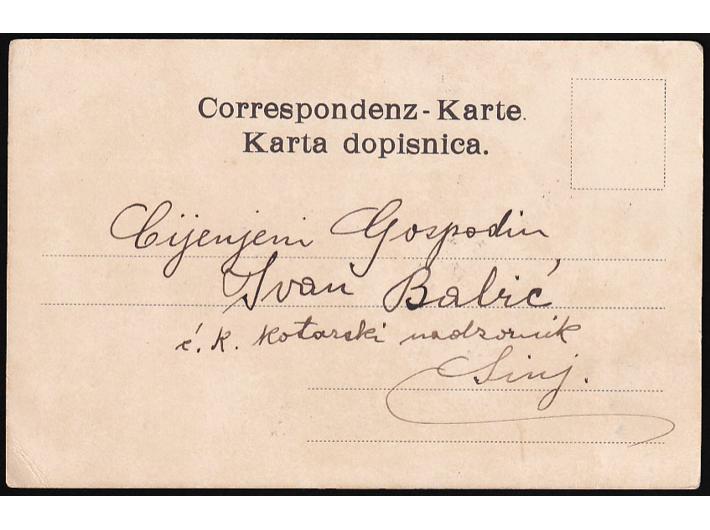 Correspondenz-Karte.
Karta dopisnica.
Cijenjeni Gospodin
Ivan Babić
ć. k. kotarski nadzornik
Sinj.